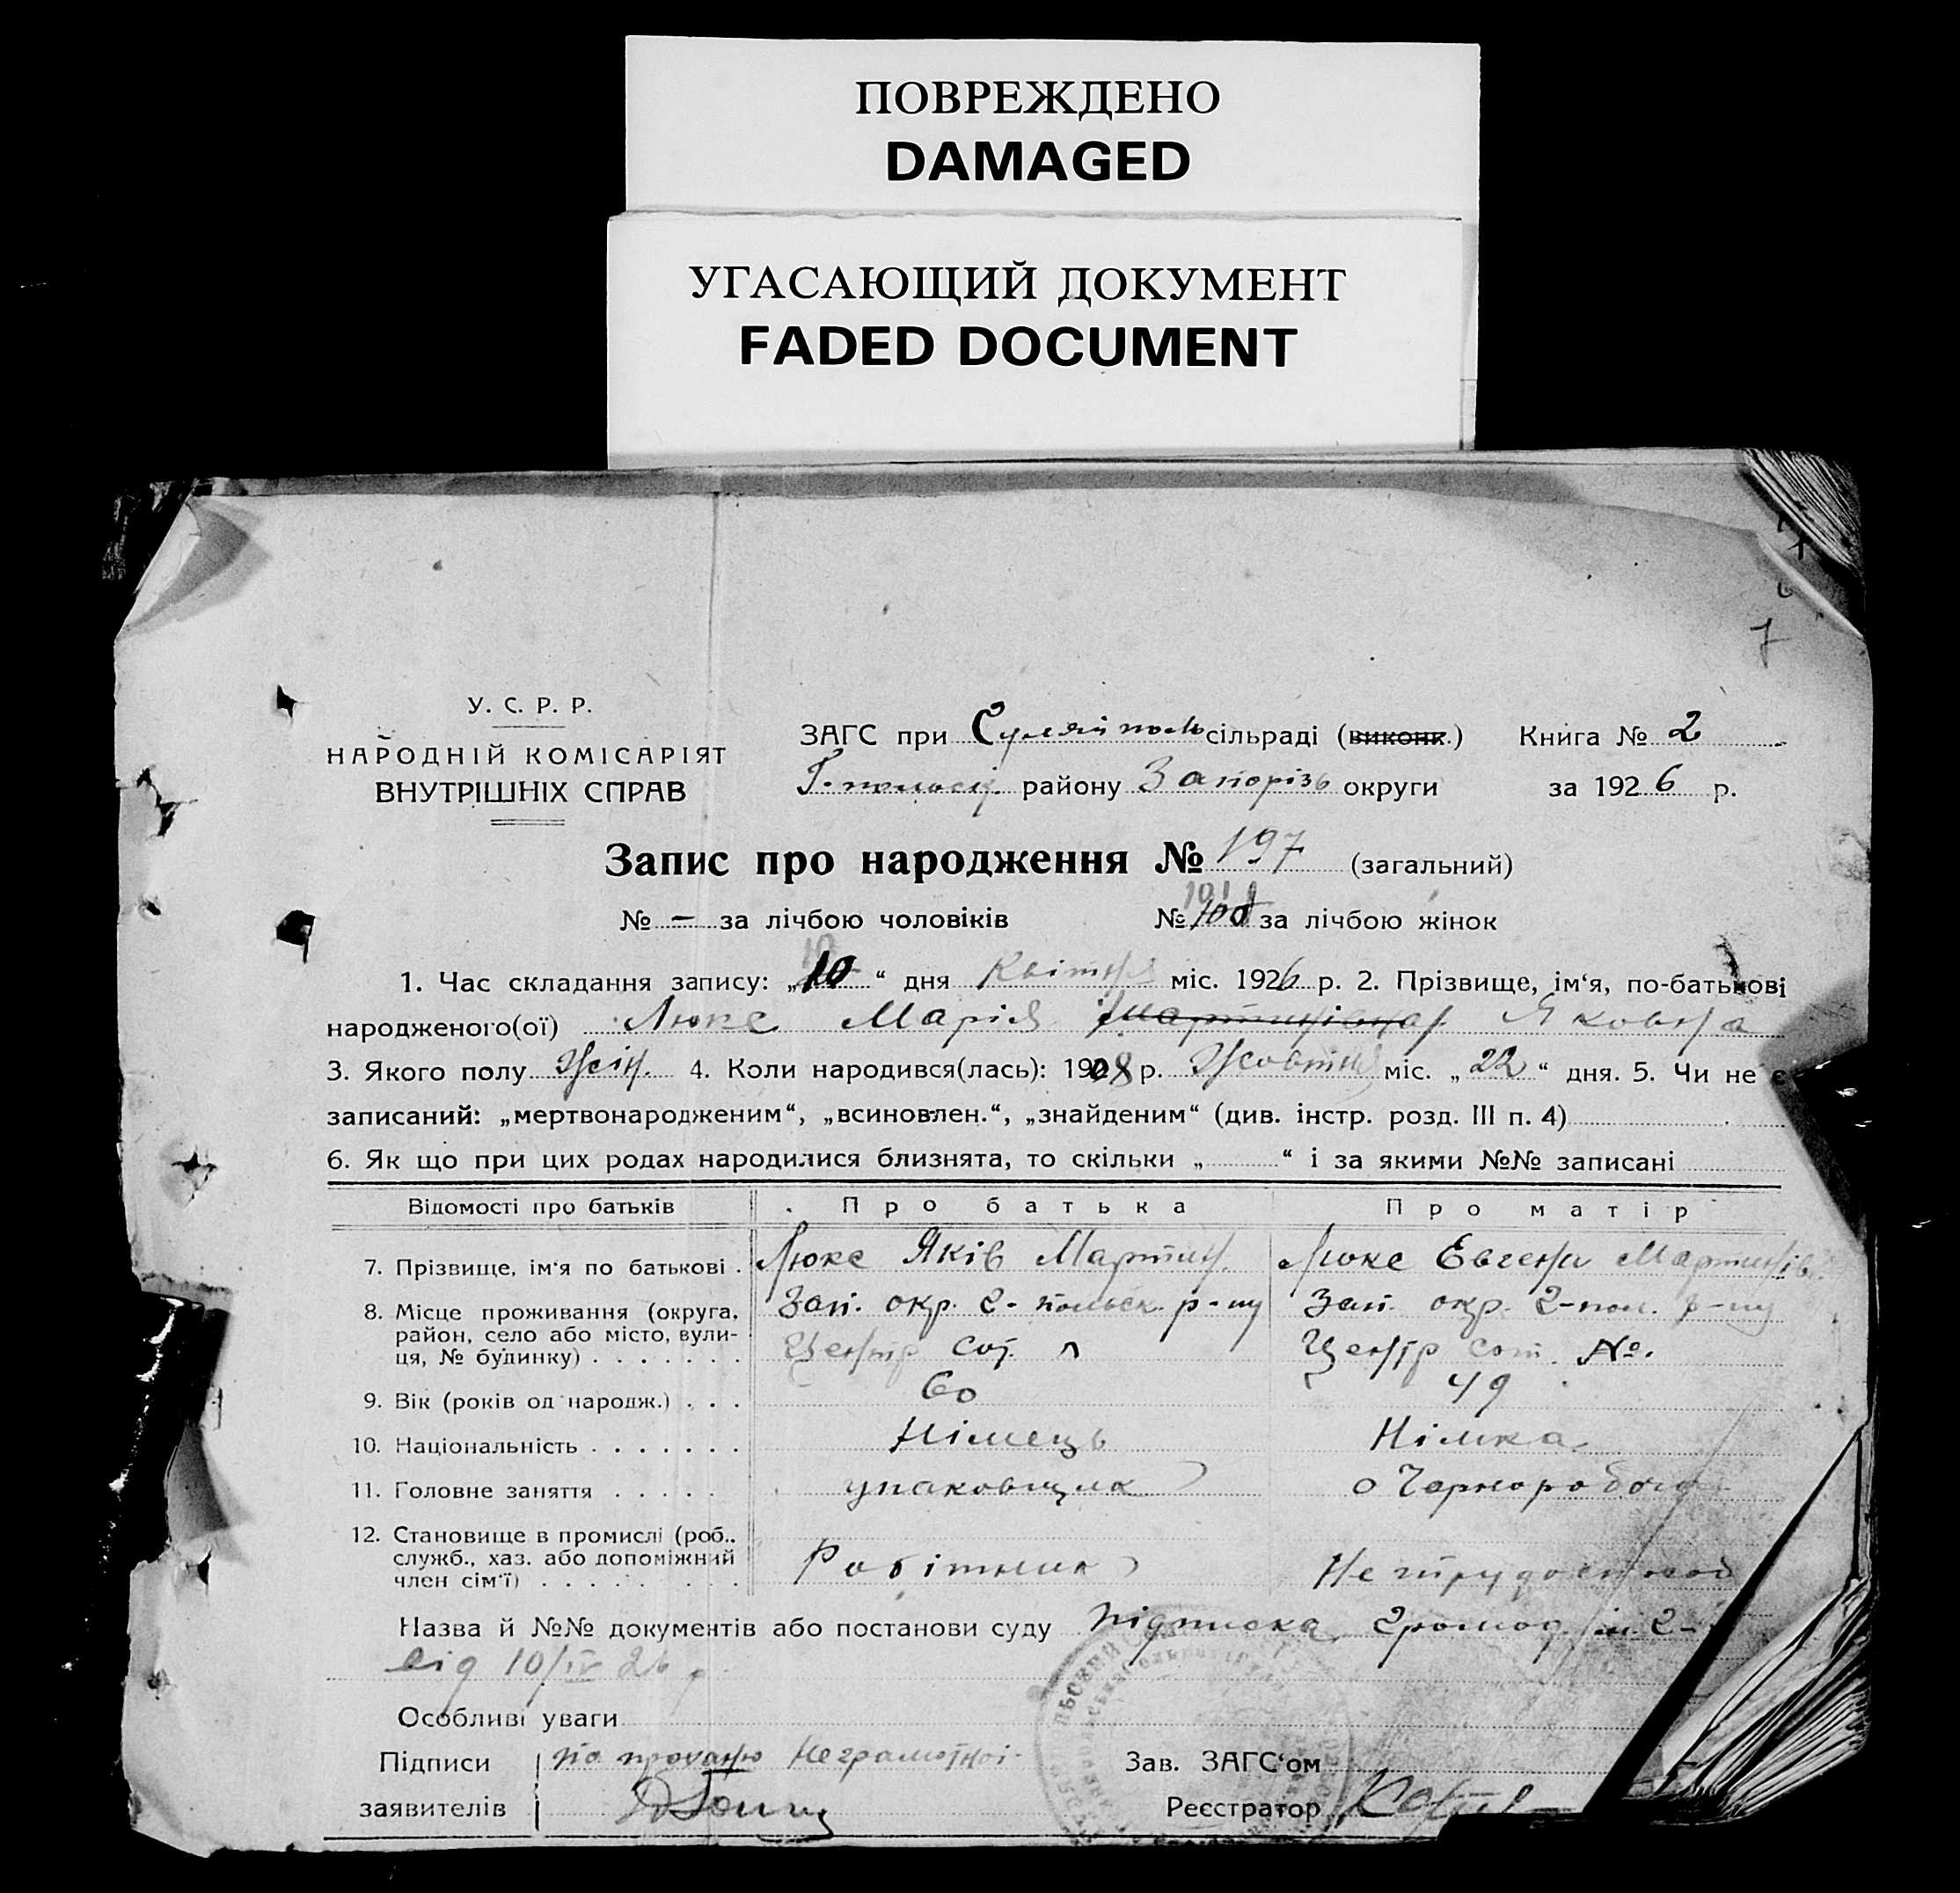 ПОВРЕЖДЕНО
DAMAGED
УГАСАЮЩИЙ ДОКУМЕНТ
FADED DOCUMENT
7
У. С. Р. Р.
НАРОДНІЙ КОМІСАРІЯТ
ВНУТРІШНІХ СПРАВ
ЗАГС при Гуляйполь сільраді (виконк.) Книга № 2
Г-польск. району Запорізь округи за 1926 р.
Запис про народження № 197 (загальний)
№ – за лічбою чоловіків № за лічбою жінок
1. Час складання запису: „10“ дня Квітня міс. 1926 р. 2. Прізвище, ім'я, по-батькові
народженого(ої) Люкс Марія Мартинівна Яковна
3. Якого полу Жін. 4. Коли народився(лась): 1908 р. Жовтня міс. „22“ дня. 5. Чи не є
записаний: „мертвонародженим“, „всиновлен.“, „знайденим“ (див. інстр. розд. III п. 4)
6. Як що при цих родах народилися близнята, то скільки „ “ і за якими №№ записані
Відомості про батьків Про батька Про матір
7. Прізвище, ім'я по батькові . Люкс Яків Мартин. Люкс Евгени Мартинів.
8. Місце проживання (округа, Зап. окр. Г-польск. р-ну Зап. окр. Г-пол. р-ну
район, село або місто, вули- Центр сот. Центр сот. №.
ця, № будинку)
9. Вік (років од народж.) . . . 60 49
10. Національність Німець Німка
11. Головне заняття упаковщик Чорнороботя
12. Становище в промислі (роб.. Робітник Нетрудоспособ
служб., хаз. або допоміжний
член сім'ї)
Назва й №№ документів або постанови суду підписка громод. Г-
від 10/IV 26 р.
Особливі уваги
Підписи по проханю неграмотної
заявителів
Зав. ЗАГС'ом
Реєстратор